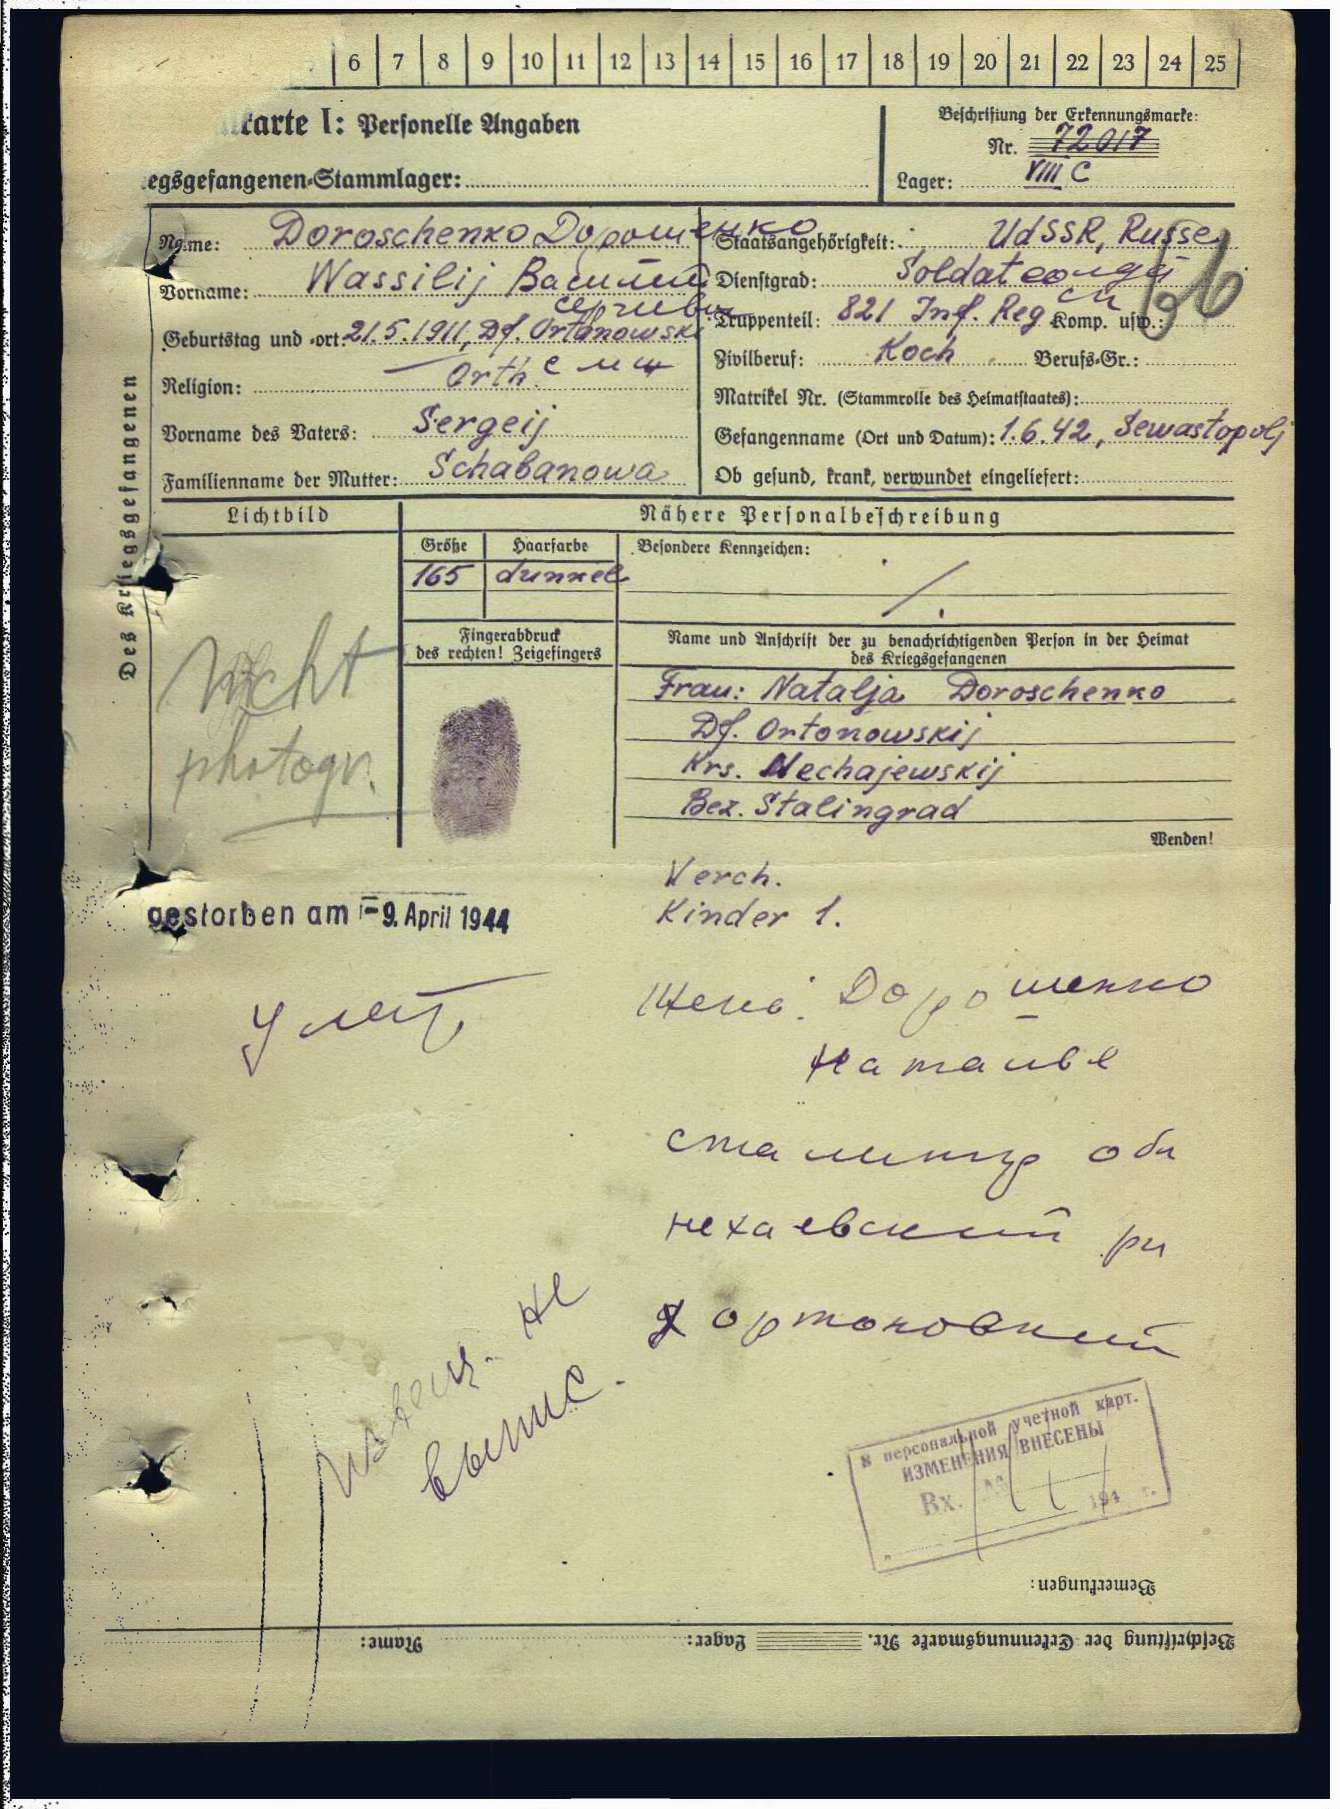 6 7 8 9 10 11 12 13 14 15 16 17 18 19 20 21 22 23 24 25
karte I: Personelle Angaben
egsgefangenen-Stammlager:
Beschriftung der Erkennungsmarke:
Nr. 72017
Lager: VIII C
Des Kriegsgefangenen
Name: Doroschenko Дорошенко
Vorname: Wassilij Василий
Сергиевич
Geburtstag und -ort: 21.5.1911, Df. Ortonowski
Religion: Orth.
Vorname des Vaters: Sergeij
Familienname der Mutter: Schabanowa
Staatsangehörigkeit: UdSSR, Russe
Dienstgrad: Soldat солдат
Truppenteil: 821 Inf. Reg Komp. usw.:
Zivilberuf: Koch Berufs-Gr.:
Matrikel Nr. (Stammrolle des Heimatstaates):
Gefangenname (Ort und Datum): 1.6.42, Sewastopolj
Ob gesund, krank, verwundet eingeliefert:
Lichtbild
Nähere Personalbeschreibung
Größe Haarfarbe Besondere Kennzeichen:
165 dunkel
Fingerabdruck
des rechten! Zeigefingers
Name und Anschrift der zu benachrichtigenden Person in der Heimat
des Kriegsgefangenen
Nicht
photogr.
Frau: Natalja Doroschenko
Df. Ortonowskij
Krs. Nechajewskij
Bez. Stalingrad
Wenden!
Verch.
Kinder 1.
gestorben am - 9. April 1944
умер
Жена: Дорошенко
Наталье
Сталингр обл
Нехаевский рн
х Ортоновский
Извещ. не
выпис.
В персональной учетной карт.
ИЗМЕНЕНИЯ ВНЕСЕНЫ
Вх. №
194 г.
Bemerkungen:
Beschriftung der Erkennungsmarke Nr. Lager: Name: